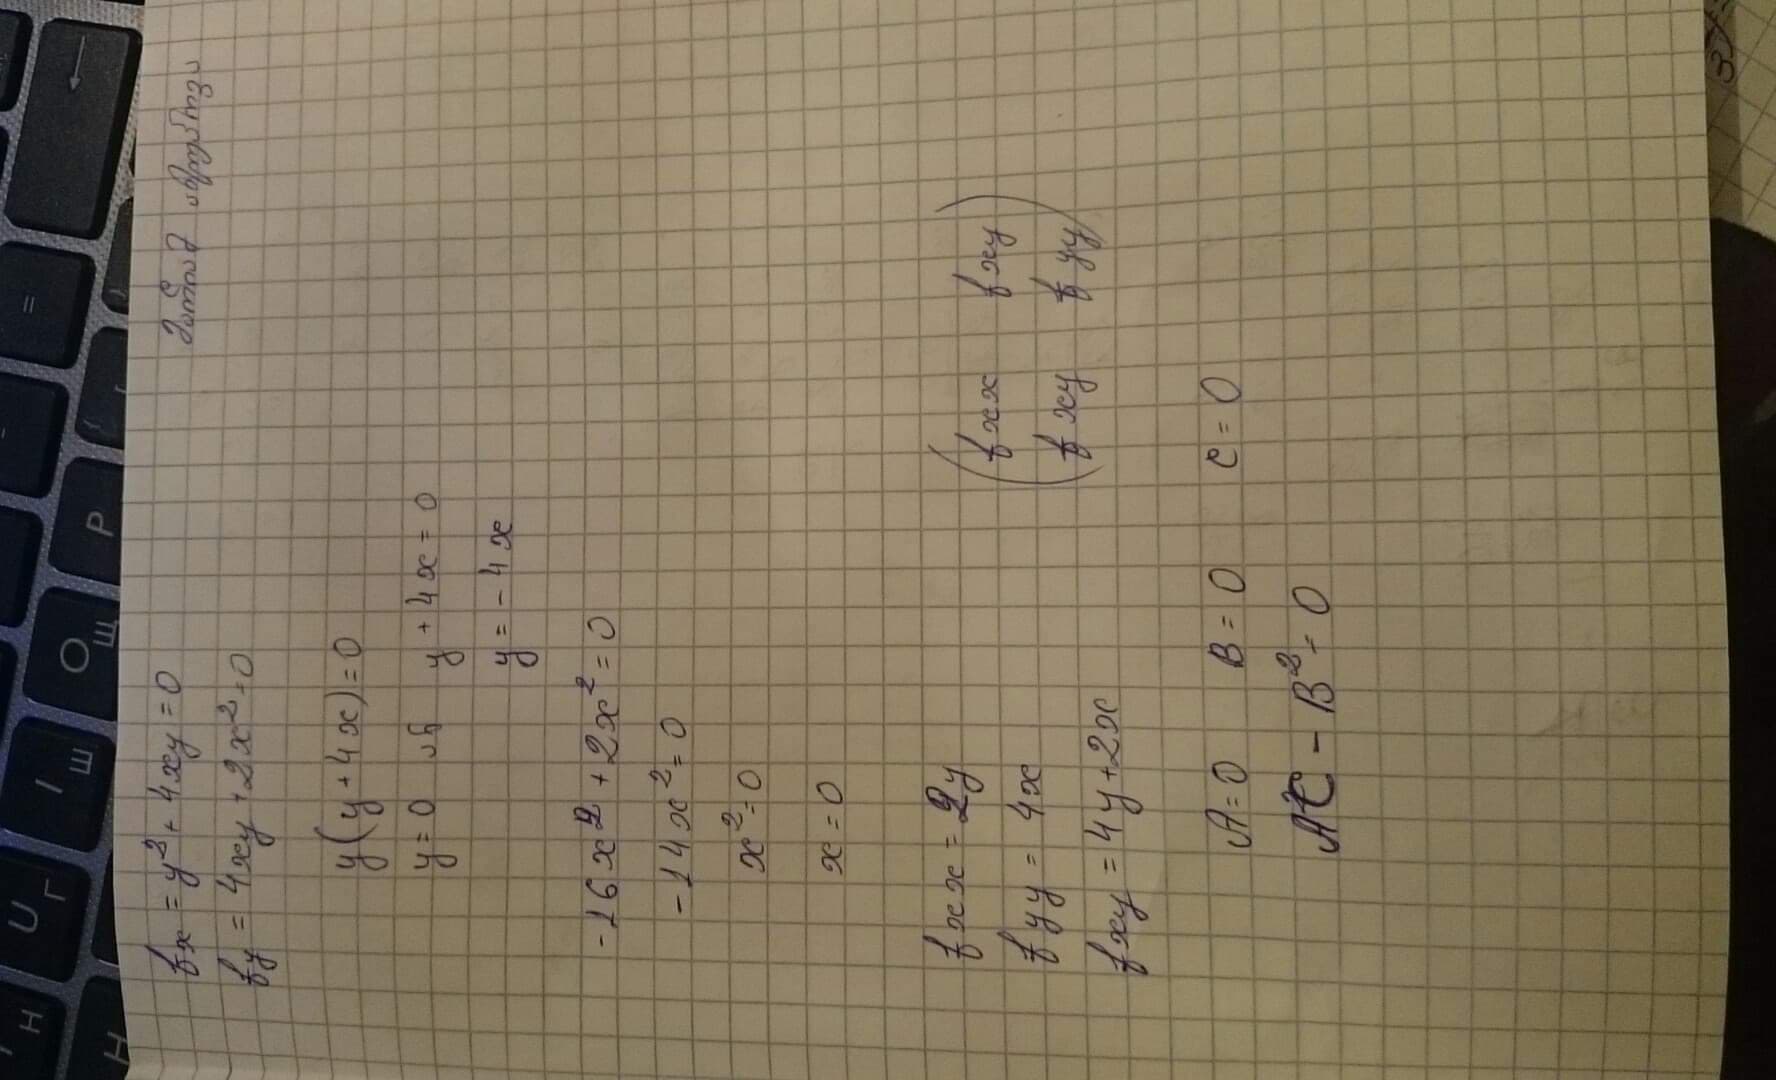 Н Г Ш Щ
U I O P =
Н
fx = y² + 4xy = 0
fy = 4xy + 2x² = 0
y(y + 4x) = 0
y = 0 ან y + 4x = 0
y = - 4x
-16x² + 2x² = 0
-14x² = 0
x² = 0
x = 0
fxx = 2y
fyy = 4x
fxy = 4y + 2x
fxx fxy
fxy fyy
A = 0 B = 0 C = 0
AC - B² = 0